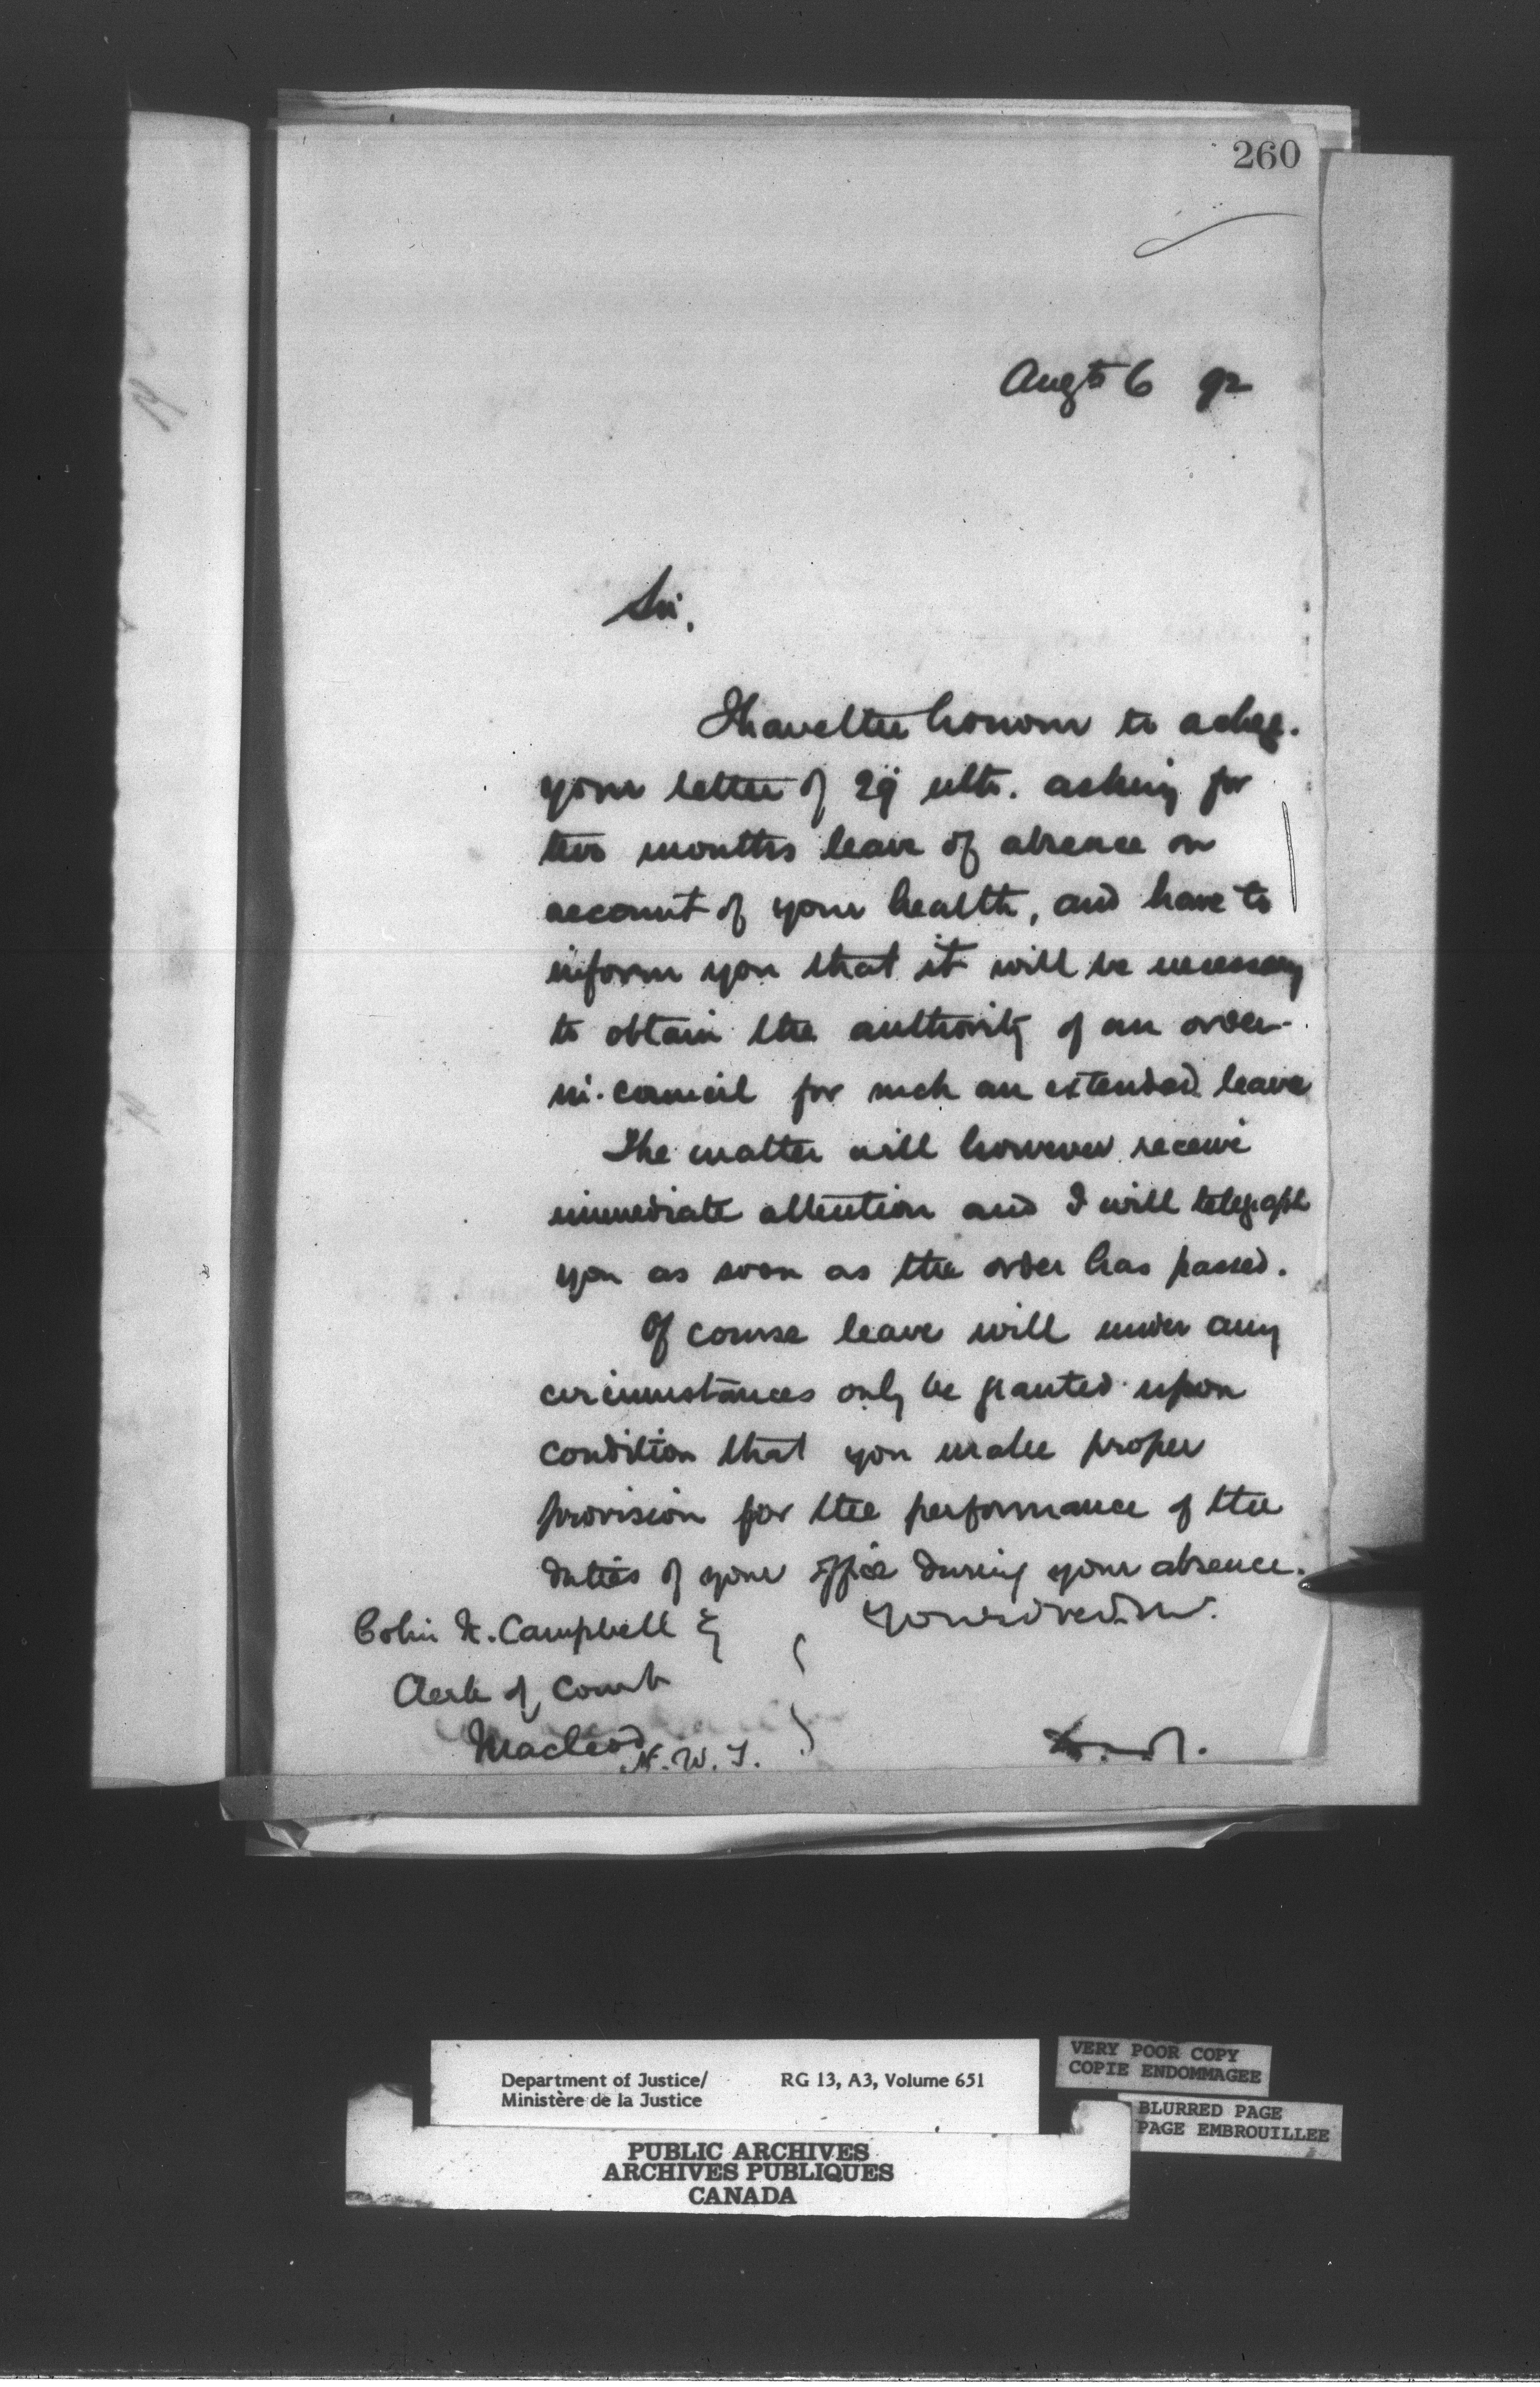 260
Augt 6 92
Sir,
I have the honour to ackge.
your letter of 29 ulto. asking for
two months leave of absence on
account of your health, and have to
inform you that it will be necessary
to obtain the authority of an order-
in-council for such an extended leave
The matter will however receive
immediate attention and I will telegraph
you as soon as the order has passed.
Of course leave will under any
circumstances only be granted upon
condition that you make proper
provision for the performance of the
duties of your office during your absence.
Colin Campbell
Clerk of Court
Macleod N.W.T.
Department of Justice/ RG 13, A3, Volume 651
Ministère de la Justice
VERY POOR COPY
COPIE ENDOMMAGEE
BLURRED PAGE
PAGE EMBROUILLEE
PUBLIC ARCHIVES
ARCHIVES PUBLIQUES
CANADA